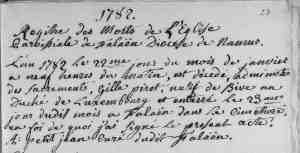 1782.
Registre des Morts de L'Eglise
Paroissiale de falaën Diocese de Namur.
L'an 1782 Le 22me jour du mois de janvier
a neuf heures du matin, est décédé, administré
des sacrements, gille pirot, natif de
Duché de Luxembourg et enterré Le 23me
jour dudit mois a falaën dans Le Cimetiere,
en foi de quoi j'ai signé Le present acte.
petitjean Curé dudit falaën.